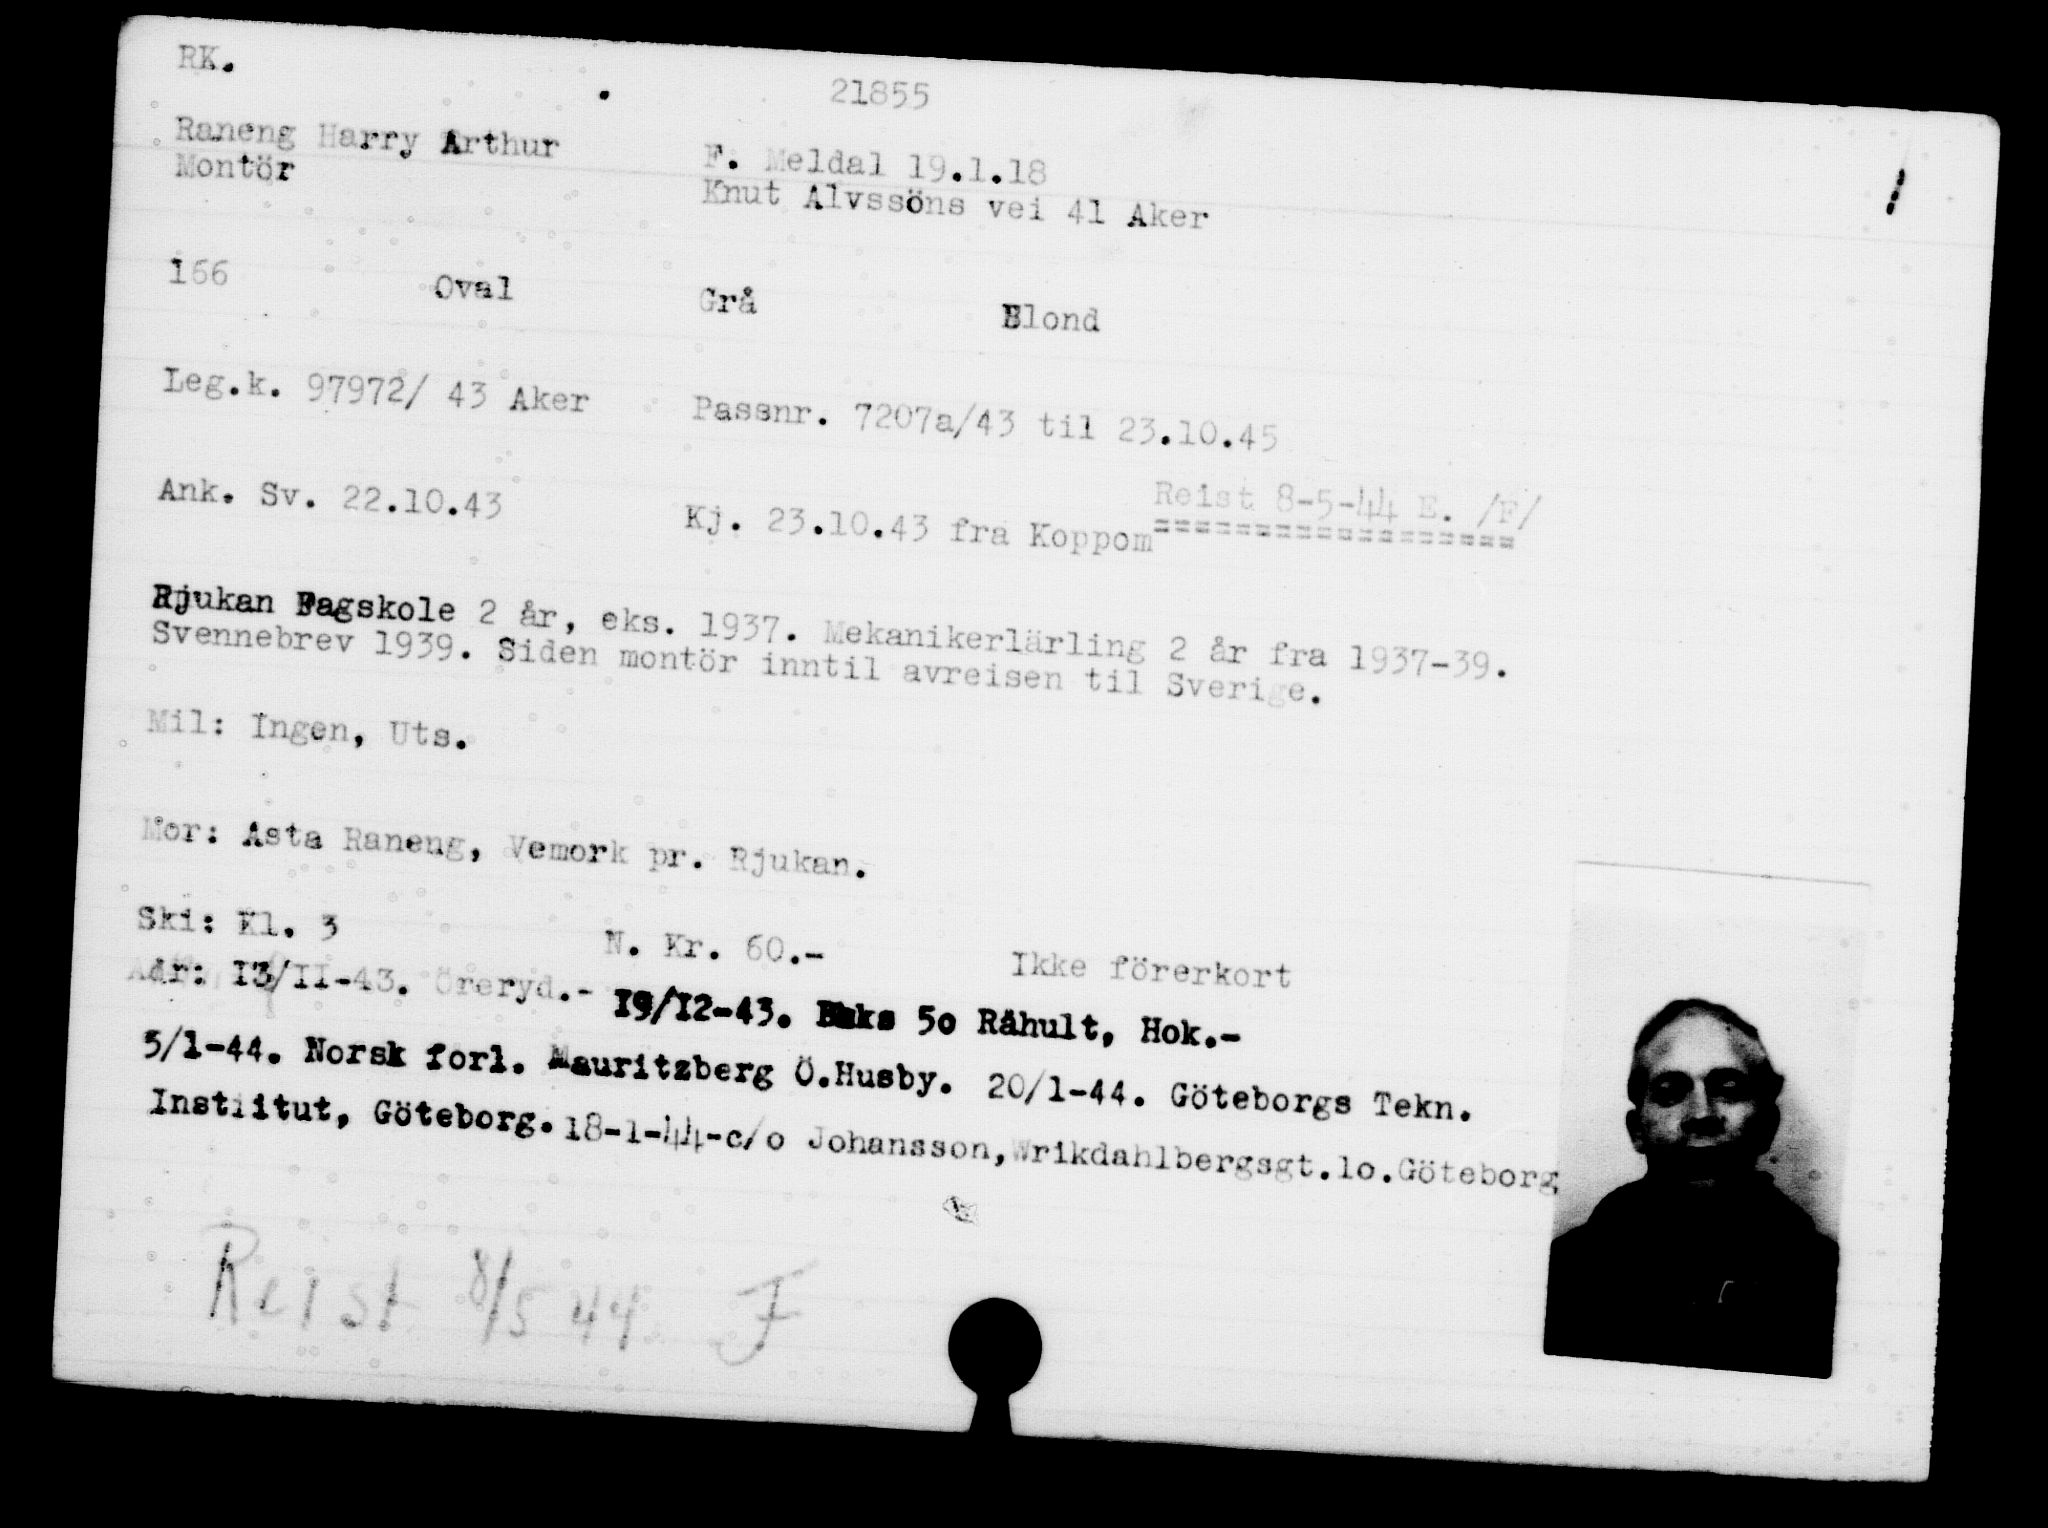 RK.
21855
Raneng Harry Arthur
F. Meldal 19.1.18
Montör
Knut Alvssöns vei 41 Aker
166 Oval Grå Blond
Leg.k. 97972/ 43 Aker Passnr. 7207a/43 til 23.10.45
Reist 8-5-44 E. /F/
Ank. Sv. 22.10.43 Kj. 23.10.43 fra Koppom==================
Rjukan Fagskole 2 år, eks. 1937. Mekanikerlärling 2 år fra 1937-39.
Svennebrev 1939. Siden montör inntil avreisen til Sverige.
Mil: Ingen, Uts.
Mor: Asta Raneng, Vemork pr. Rjukan.
Ski: Kl. 3 N. Kr. 60.- Ikke förerkort
Adr: 13/11-43. Öreryd.- 19/12-43. 50 Råhult, Hok.-
3/1-44. Norsk forl. Mauritzberg Ö.Husby. 20/1-44. Göteborgs Tekn.
Institut, Göteborg. 18-1-44-c/o Johansson, Wrikdahlbergsgt.10.Göteborg
Reist 8/5 44 F